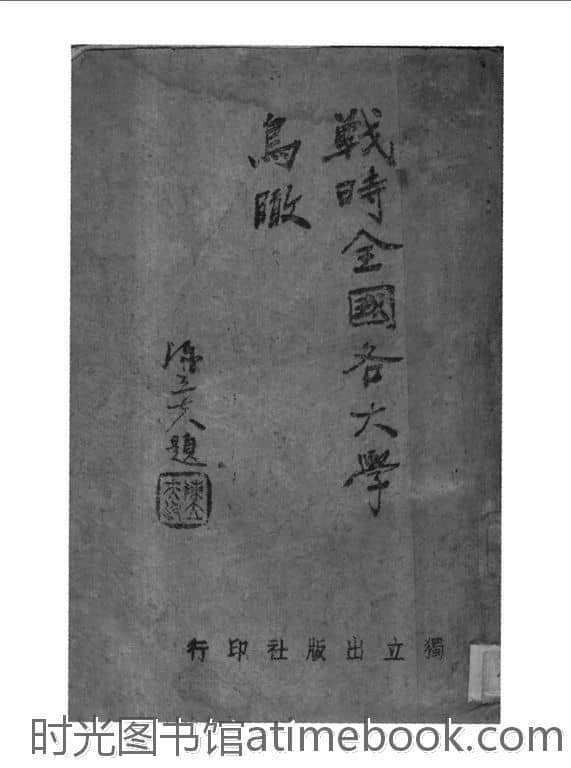 戰時全國各大學
鳥瞰
陳立夫題
獨立出版社印行
时光图书馆atimebook.com